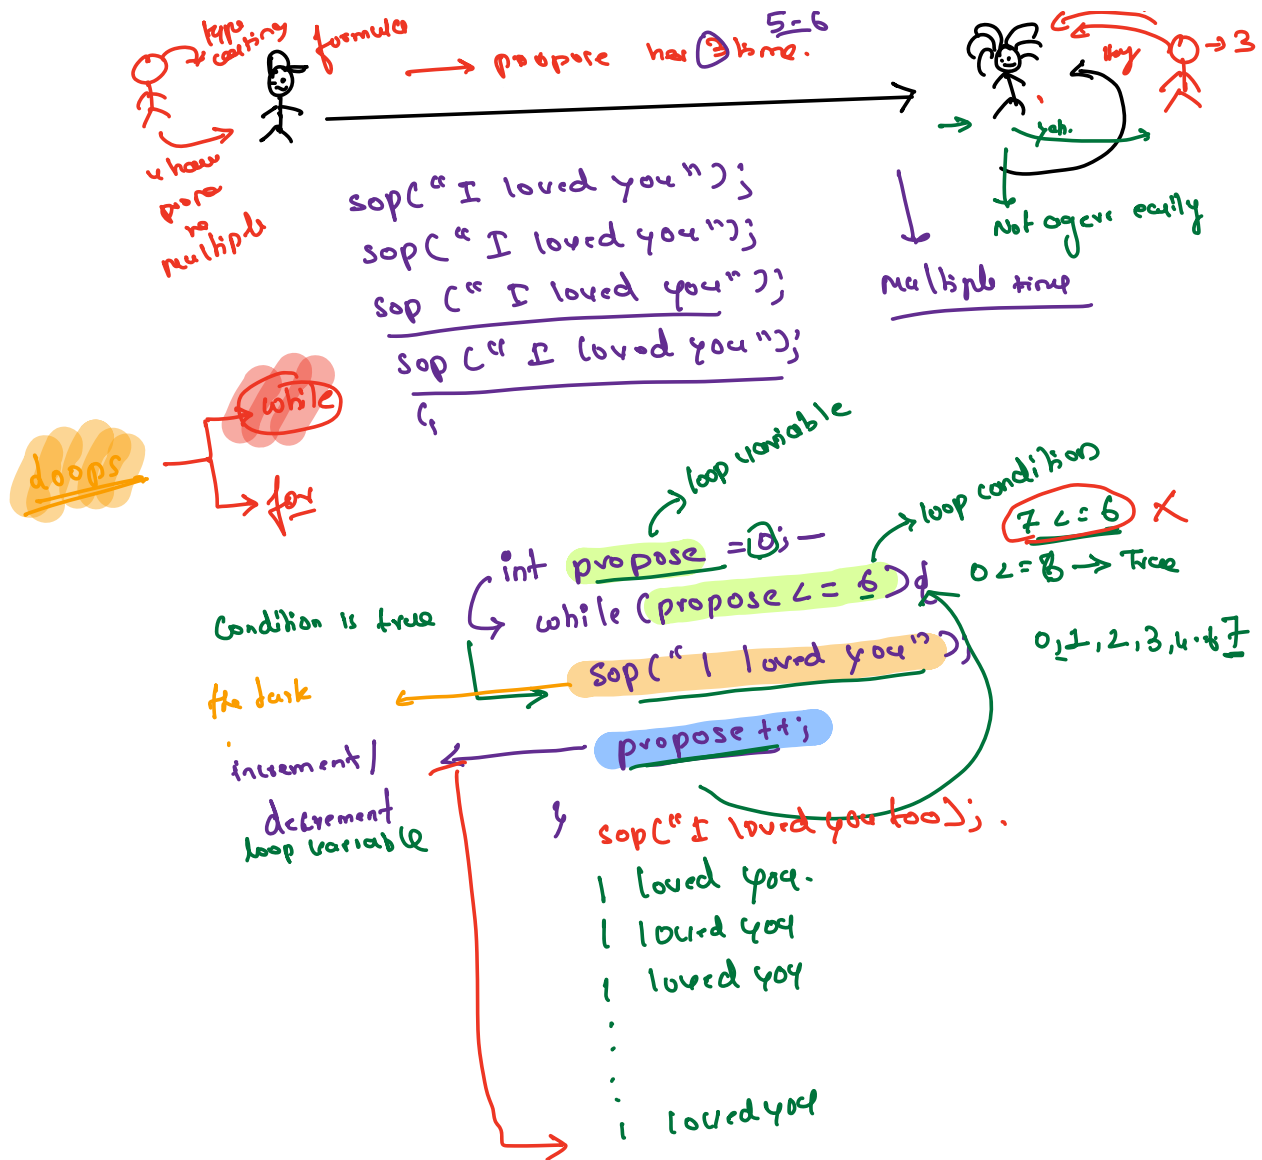 5-6
type
casting
formula
propose her 3 time.
Hey
→ 3
yah.
u have
propo
re
multiple
sop("I loved you");
sop("I loved you");
sop ("I loved you");
sop ("I loved you");
(,
Not agers easily
multiple time
while
loops
for
loop variable
loop condition
7 <= 6 X
int propose = 0;
0 <= 8 → True
while (propose <= 6) {
Condition is true
0,1,2,3,4.. 7
sop("I loved you");
the task
propose ++;
increment/
decrement
loop variable
}
sop("I loved you too);.
I loved you.
I loved you
I loved you
I loved you